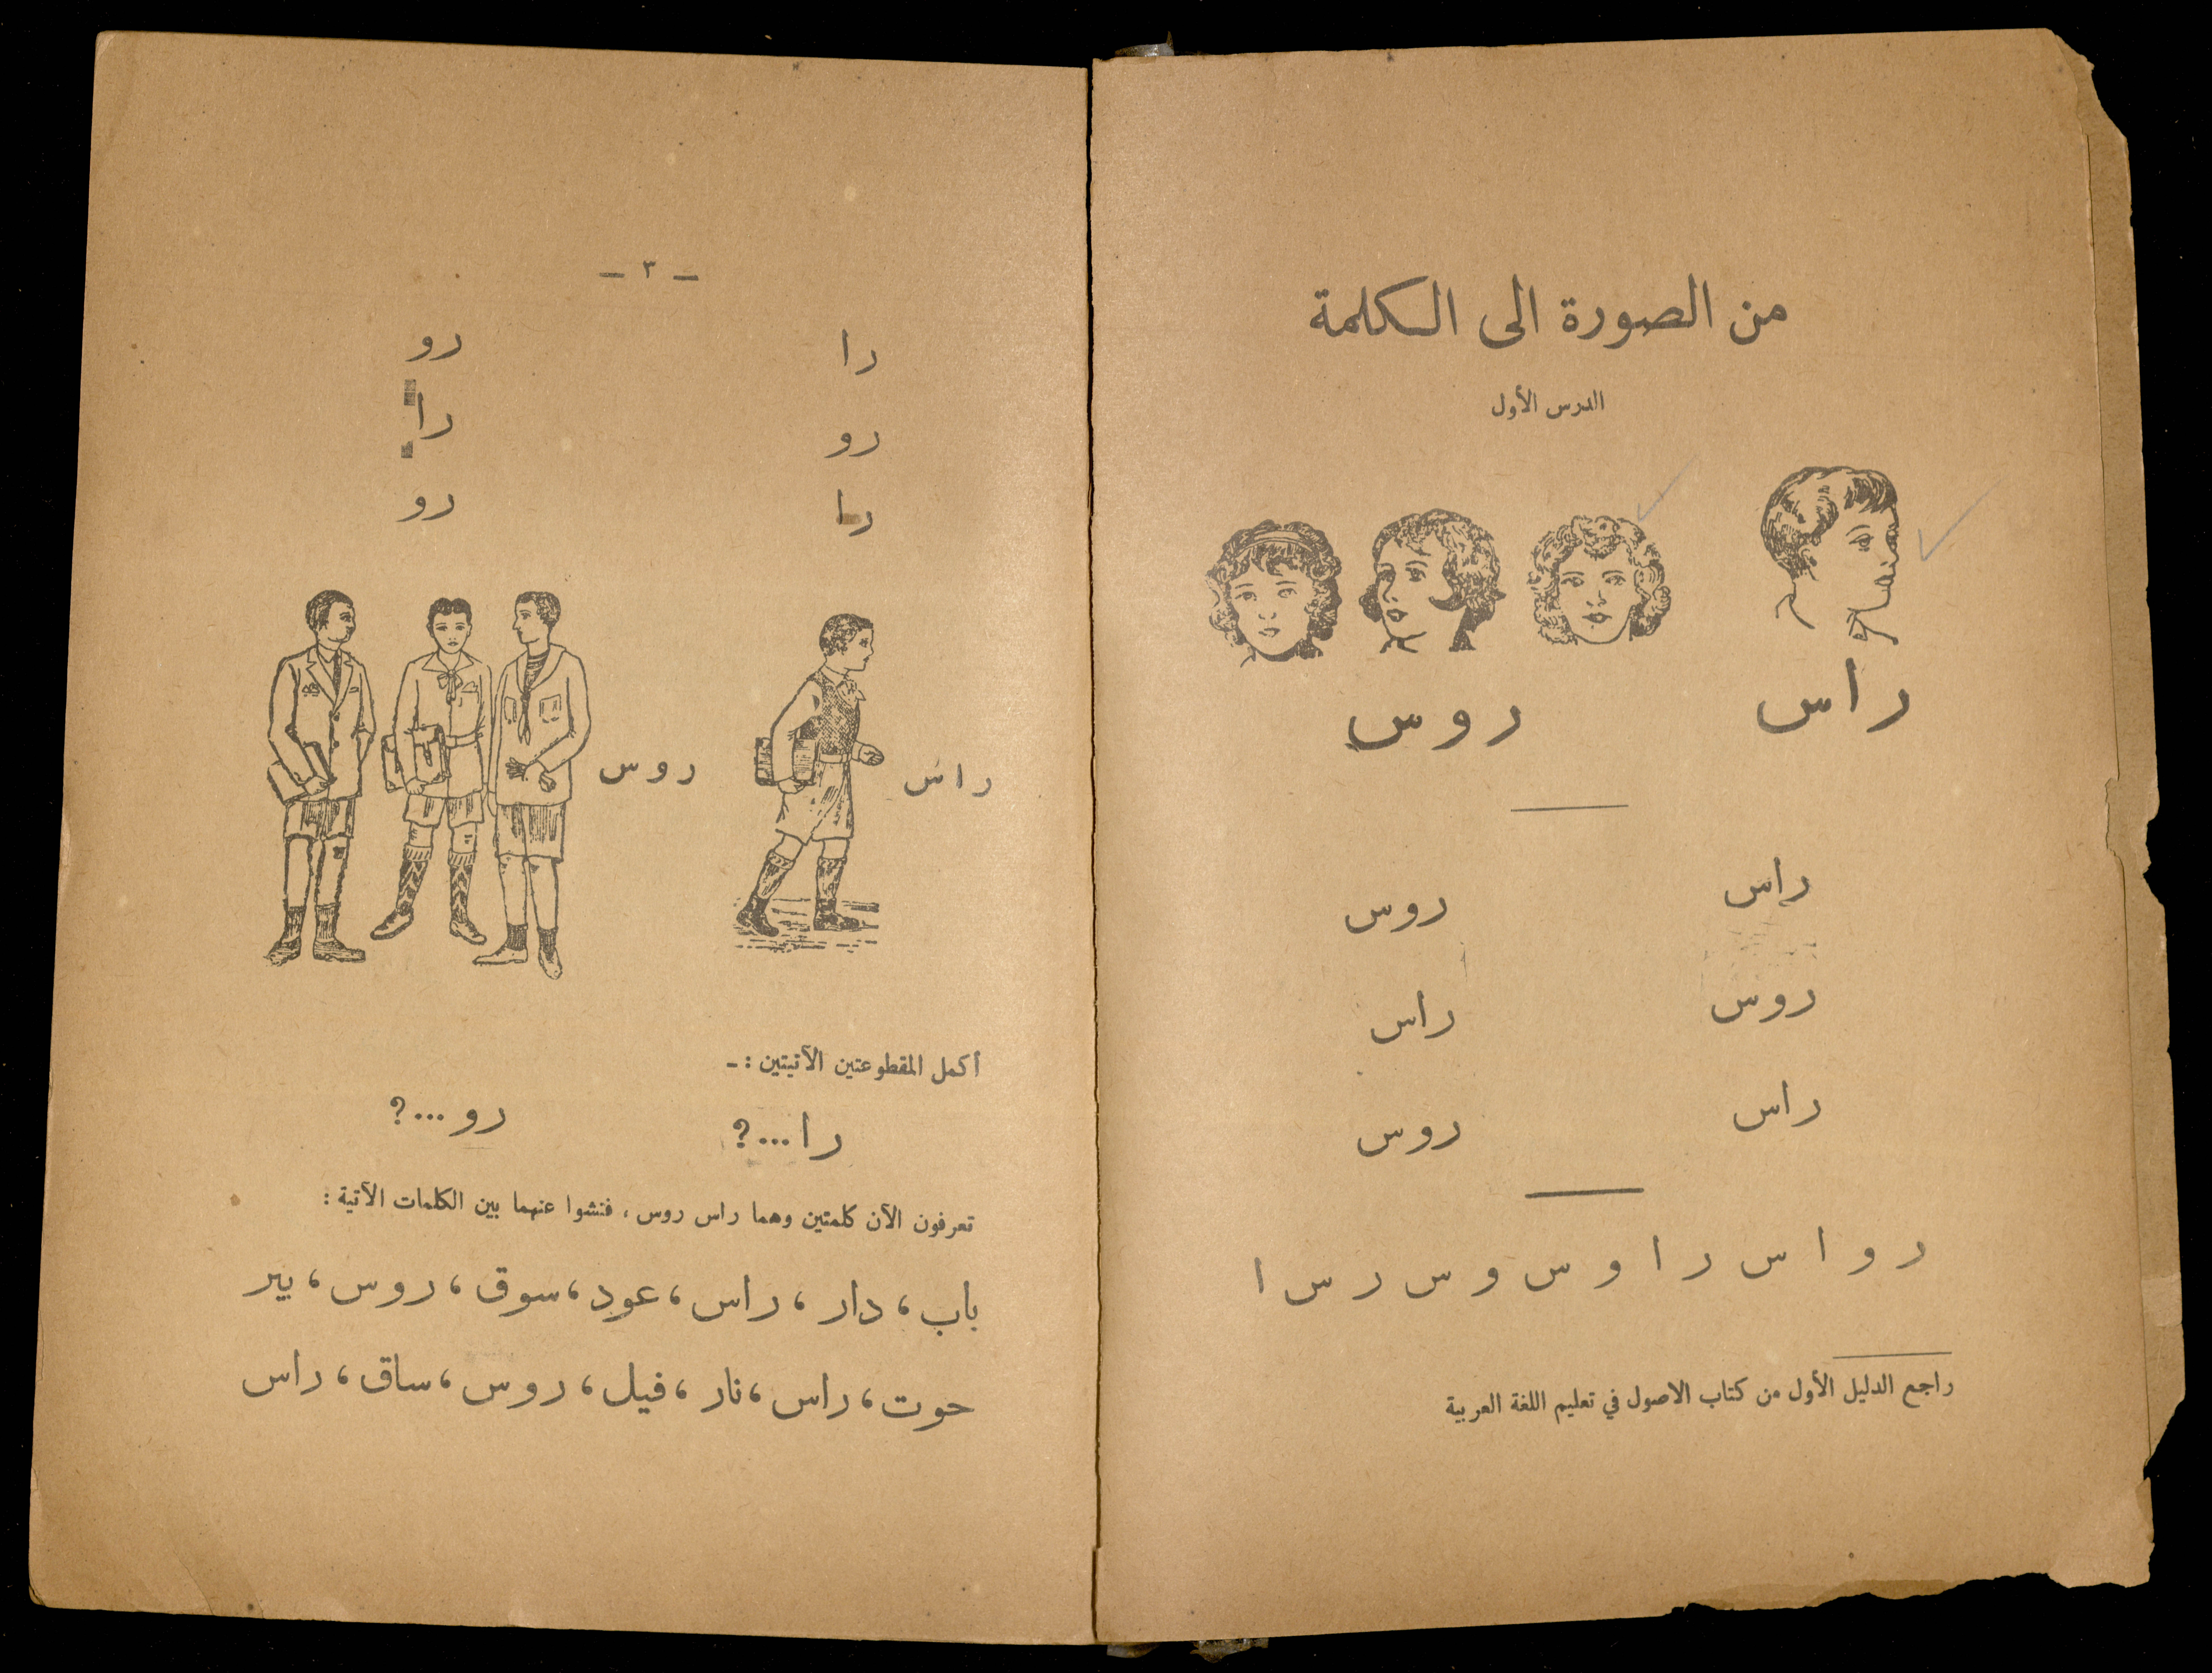 من الصورة الى الكلمة
الدرس الأول
راس روس
راس روس
روس راس
راس روس
ر و ا س ر ا و س و س ر س ا
راجع الدليل الأول من كتاب الاصول في تعليم اللغة العربية
— ٣ —
را رو
رو را
را رو
راس روس
أكمل المقطوعتين الآتيتين :-
را...؟ رو...؟
تعرفون الآن كلمتين وهما راس روس ، فتشوا عنهما بين الكلمات الآتية :
باب ، دار ، راس ، عود ، سوق ، روس ، بير
حوت ، راس ، نار ، فيل ، روس ، ساق ، راس